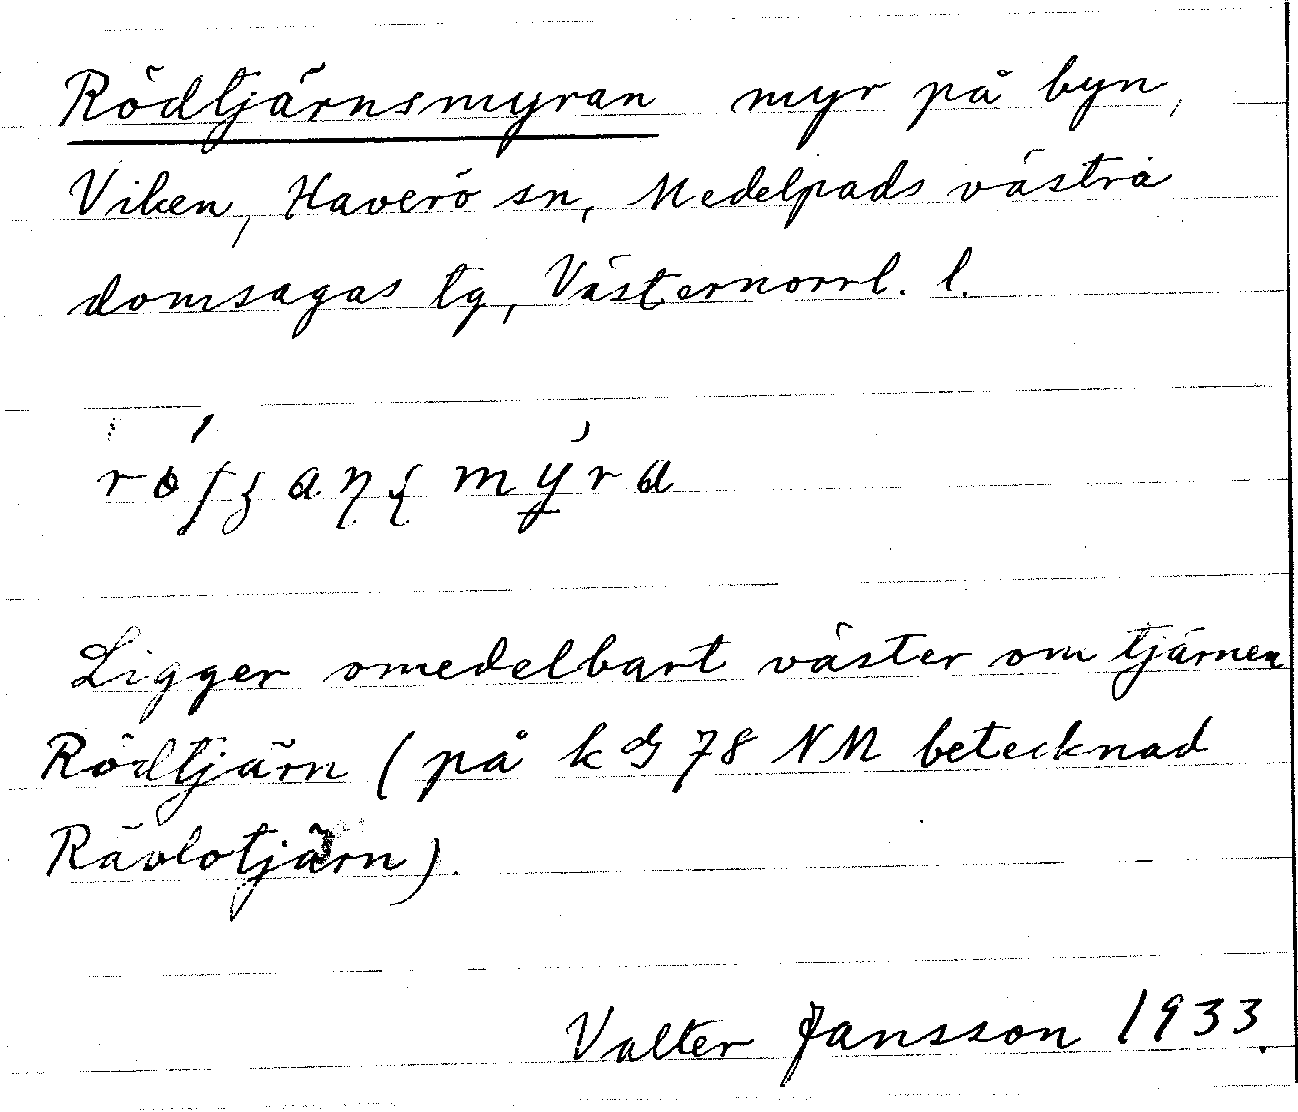 Rödtjärnsmyran myr på byn,
Viken, Haverö sn, Medelpads västra
domsagas tg, Västernorrl. l.
Ligger omedelbart väster om tjärnen
Rödtjärn (på kbl 78 NM betecknad
Rävlotjärn).
Valter Jansson 1933.